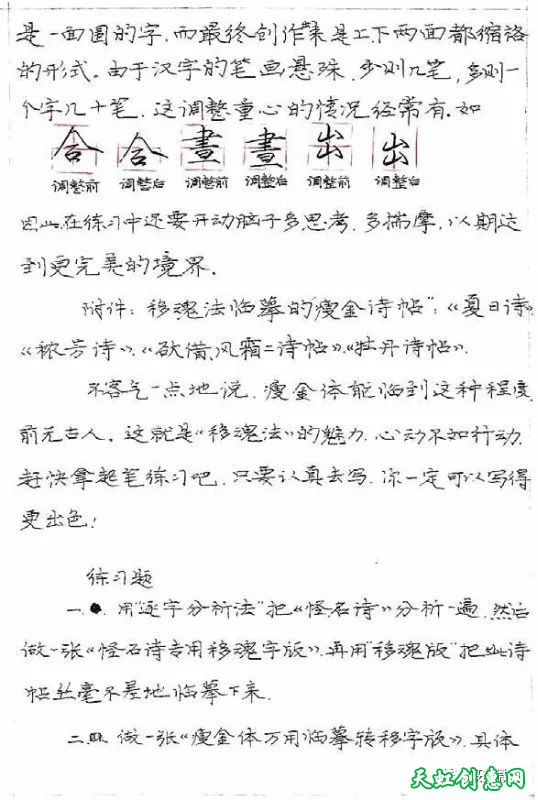 是一面圆的字，而最终创作结果是上下两面都缩格
的形式。由于汉字的笔画悬殊，少则几笔，多则一
个字几十笔，这调整重心的情况经常有。如
合 合 書 書 出 出
调整前 调整后 调整前 调整后 调整前 调整后
因此在练习中还要开动脑子多思考，多揣摩，以期达
到更完美的境界。
附件：移魂法临摹的“瘦金诗帖”：《夏日诗》
《秾芳诗》、《欲借、风霜二诗帖》、《牡丹诗帖》。
不客气一点地说，瘦金体能临到这种程度，
前无古人，这就是“移魂法”的魅力，心动不如行动，
赶快拿起笔练习吧，只要认真去写，你一定可以写得
更出色！
练习题
一、用“逐字分析法”把《怪石诗》分析一遍，然后
做一张《怪石诗专用移魂字版》，再用“移魂版”把此诗
帖丝毫不差地临摹下来。
二、做一张《瘦金体万用临摹转移字版》，具体
天虹创意网